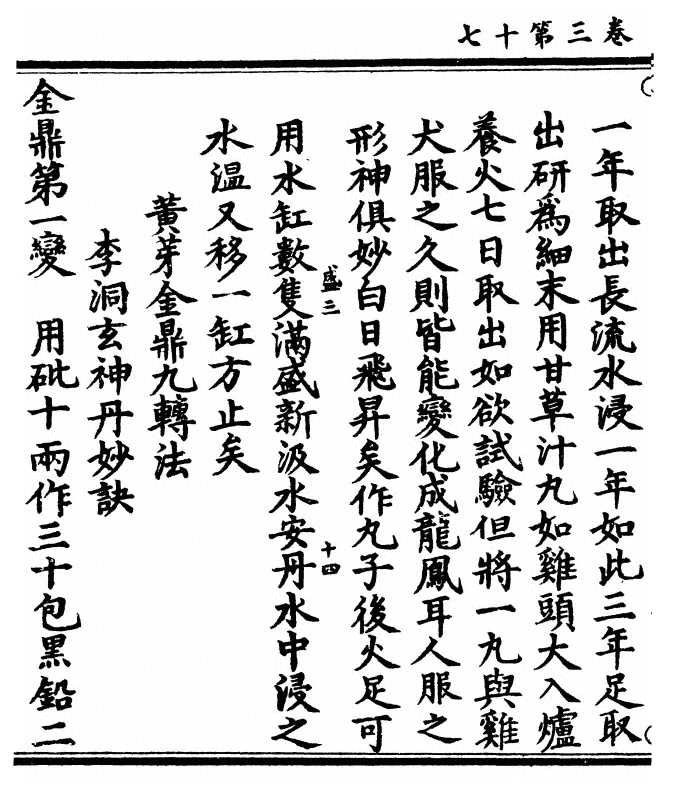 七十第三卷
一年取出長流水浸一年如此三年足取
出研爲細末用甘草汁丸如雞頭大入爐
養火七日取出如欲試驗但將一丸與雞
犬服之久則皆能變化成龍鳳耳人服之
形神俱妙白日飛昇矣作丸子後火足可
盛三
十四
用水缸數隻滿盛新汲水安丹水中浸之
水温又移一缸方止矣
黃芽金鼎九轉法
李洞玄神丹妙訣
金鼎第一變　用砒十兩作三十包黑鉛二